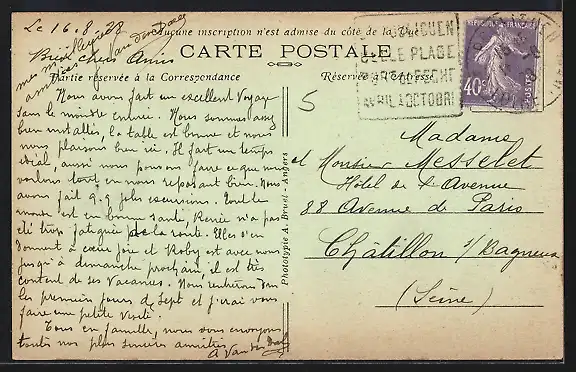 Le 16.8.28
Aucune inscription n'est admise du côté de la Vue
Bien chers Amis
CARTE POSTALE
Partie réservée à la Correspondance
Réservée à l'Adresse
Nous avons fait un excellent voyage
sans le moindre ennui. Nous sommes assez
bien installés, la table est bonne et nous
nous plaisons bien ici. Il fait un temps
idéal, aussi nous pouvons faire ce que nous
voulons tout en nous reposant bien. Nous
avons fait q.q jolies excursions. Tout le
monde est en bonne santé, Renée n'a pas
été trop fatiguée de la route. Elles s'en
donnent à cœur joie et Roby est avec nous
jusqu'à dimanche prochain, il est très
content de ses Vacances. Nous rentrerons dans
les premiers jours de Sept et j'irai vous
faire une petite visite.
Tous en famille, nous vous envoyons
toutes nos plus sincères amitiés
Phototypie A. Bruel - Angers
BELLE PLAGE
AVRIL à OCTOBRE
REPUBLIQUE FRANÇAISE
40c
POSTES
5
Madame
et Monsieur Messelet
Hôtel de l'Avenue
88 Avenue de Paris
Châtillon s/ Bagneux
(Seine)